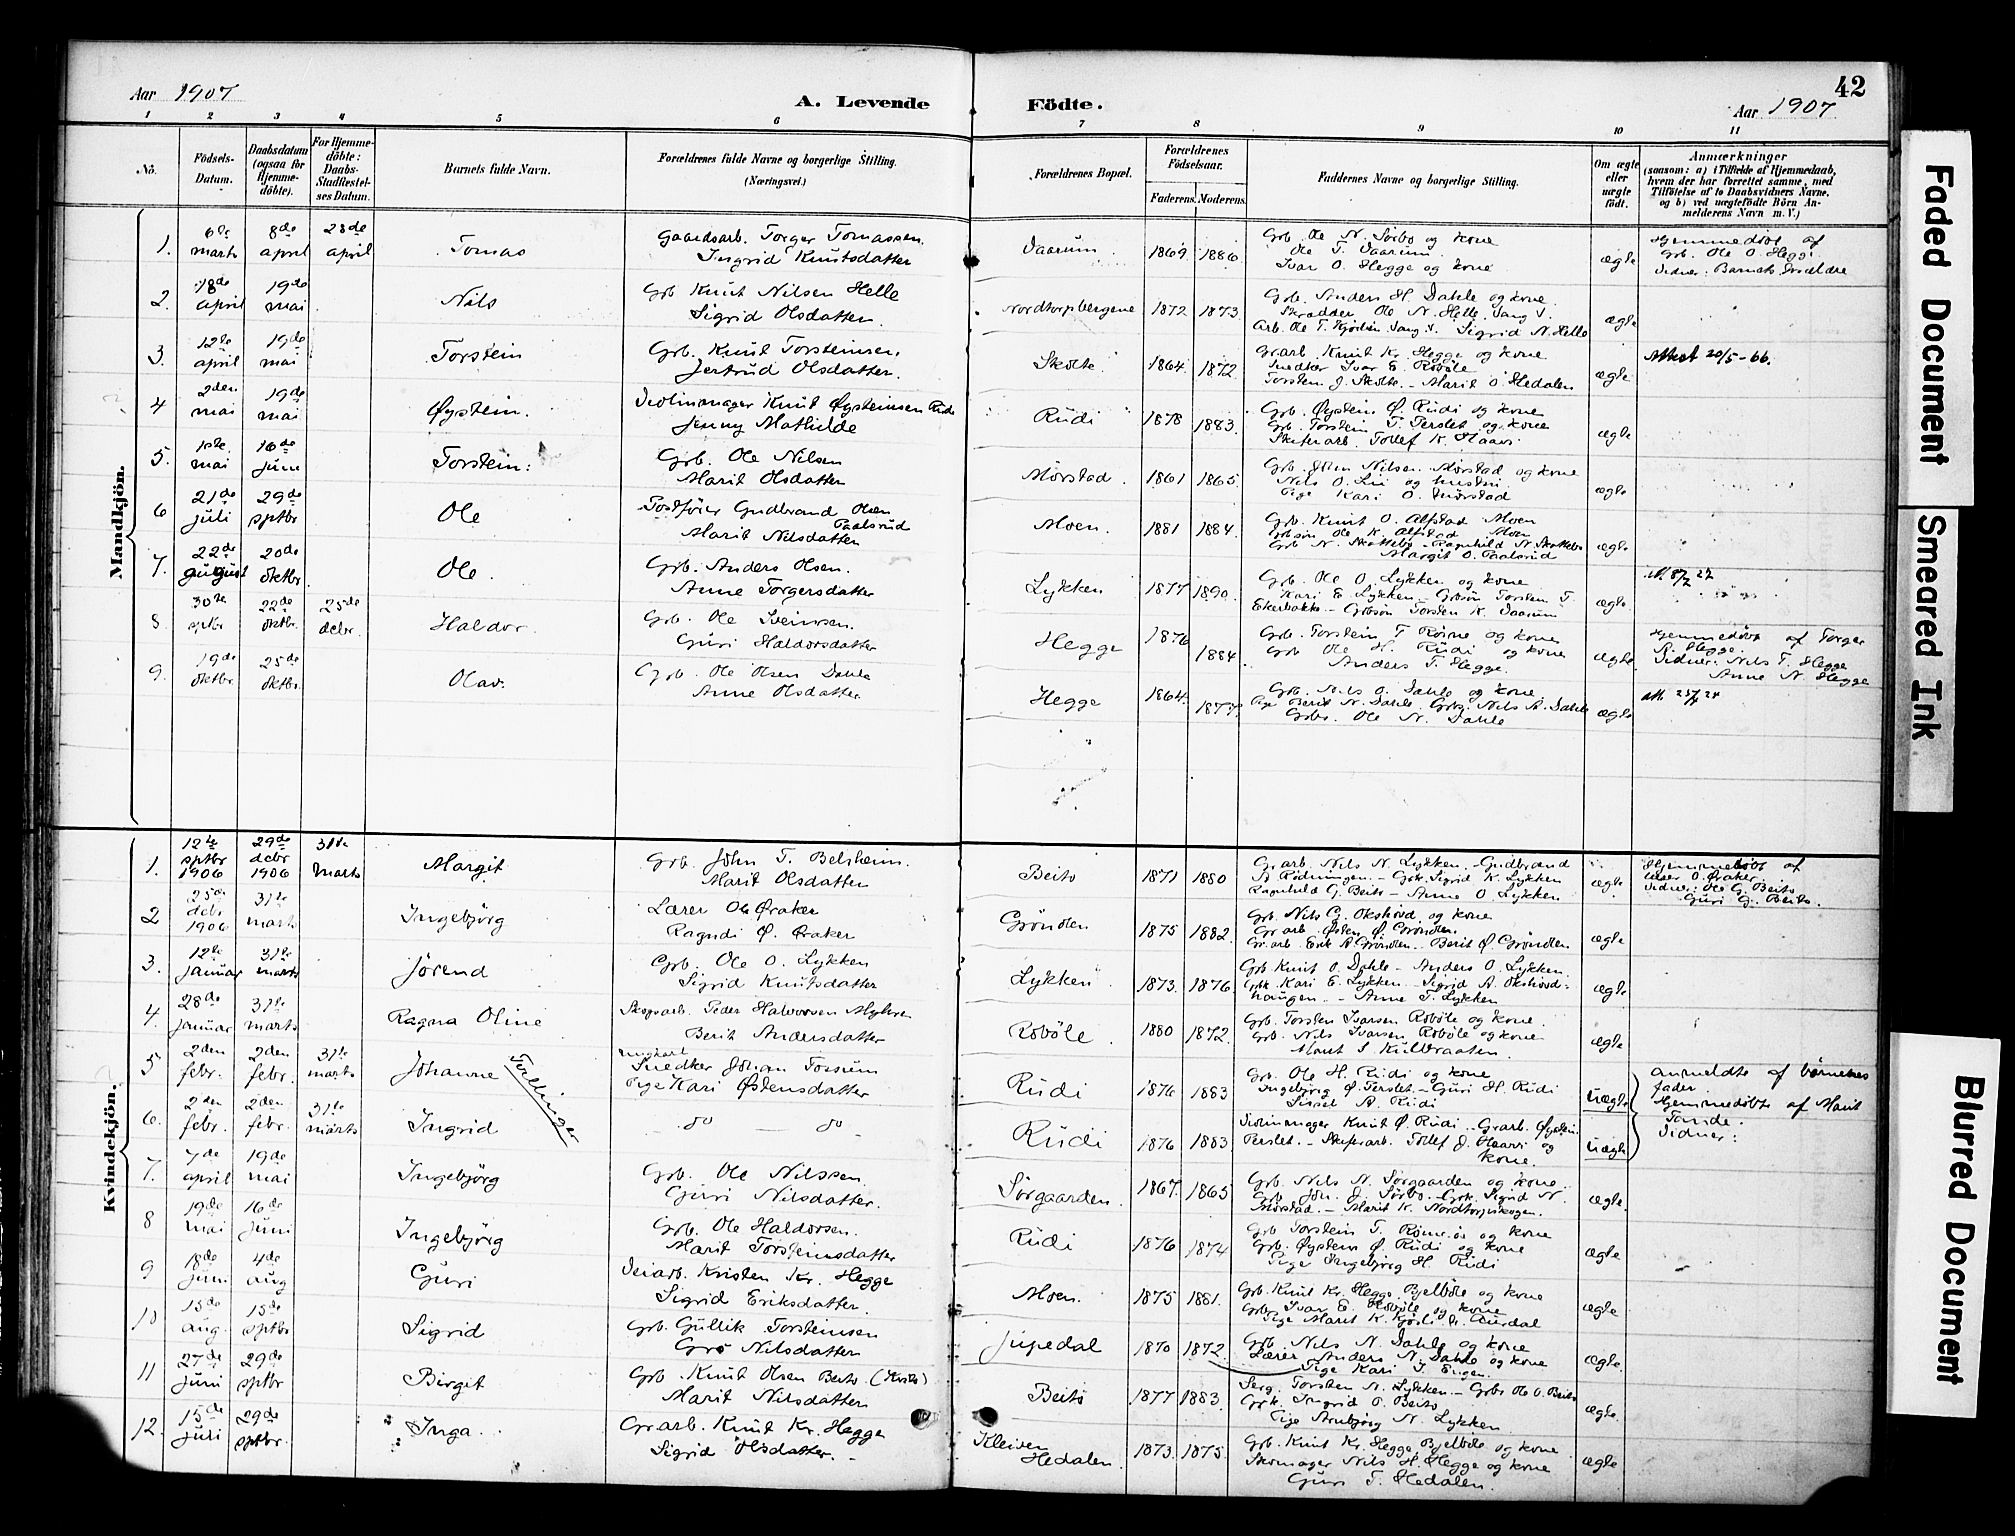 42
Aar 1907
A. Levende Födte.
Aar 1907
1 2 3 4 5 6 7 8 9 10 11
No.
Födsels-Datum.
Daabsdatum (ogsaa for Hjemme-döbte).
For Hjemme-döbte: Daabs-Stadfæstel-ses Datum.
Barnets fulde Navn.
Forældrenes fulde Navne og borgerlige Stilling.
(Næringsvei.)
Forældrenes Bopæl.
Forældrenes Födselsaar.
Faderens. Moderens.
Faddernes Navne og borgerlige Stilling.
Om ægte eller uægte födt.
Anmærkninger
(saasom: a) i Tilfælde af Hjemmedaab, hvem der har forrettet samme, med Tilföielse af to Daabsvidners Navne, og b) ved uægtefödte Börn An-melderens Navn m. V.)
Mandkjön.
1. 6te marts 8de april 28de april Tomas
Gaardsarb. Torger Tomassen.
Ingrid Knutsdatter
Vaarum 1869 1886
Grb. Ole N. Sørbo og kone
Ole T. Vaarum.
Ivar O. Hegge og kone
ægte
Hjemmedøbt af
Grb. Ole O. Hegge
Vidner: Barnets Forældre
2. 18de april 19de mai Nils
Grb Knut Nilsen Helle
Sigrid Olsdatter.
Nordtorpbergene 1872 1873
Grb. Anders H. Dahle og kone.
Skrædder Ole N. Helle, Vang V.
Arb. Ole T. Kjøslin Vang V. Sigrid N. Helle
ægte
3. 12te april 19de mai Torstein
Grb. Knut Torsteinsen.
Jertrud Olsdatter.
Skolte 1864 1872
Grarb. Knut Kr. Hegge og kone
Snedker Ivar E. Robøle
Torsten J. Skolte. - Marit O. Hedalen
ægte
Attest 20/5-66.
4 2den mai 19de mai Øystein.
Violinmager Knut Øysteinsen Rudi
Jenny Mathilde
Rudi 1878 1883
Grb. Øystein Ø. Rudi og kone
Grb. Torstein T. Terslet og kone
Skiferarb. Tollef K. Haarvi
ægte
5. 1ste mai 16de juni Torstein.
Grb. Ole Nilsen
Marit Olsdatter
Mörstad. 1861 1865
Grb. John Nilsen Mørstad og kone
Nils O. Lii og hustru
Pige Kari O. Mørstad
ægte
6 21de juli 29de sptbr Ole
Postfører Gudbrand Olsen Paalsrud
Marit Nilsdatter
Moen. 1881 1884
Grb. Knut O. Alfstad Moen
Grbsøn Ole K. Alfstad Moen
Grb N. Skattebo - Ragnhild N. Skattebo
Margit O. Paalsrud
ægte
7. 22de august 20de oktbr. Ole.
Grb. Anders Olsen.
Anne Torgersdatter
Lykken 1877 1890
Grb. Ole O. Lykken og kone
Kari E. Lykken - Grbsøn Torsten T.
Ekerbakke - Grbsøn Torsten K. Vaarum
ægte
8. 30te sptbr 22de oktbr. 25de debr. Haldor.
Grb. Ole Sveinsen.
Guri Haldorsdatter
Hegge 1876 1884
Grb. Torstein T. Røine og kone
Grb Ole H. Rudi og kone
Anders T. Hegge.
ægte
Hjemmedøbt af Torger
O. Hegge.
Vidner: Nils T. Hegge
Anne N. Hegge
9. 19de oktbr. 25de oktbr. Olav.
Grb. Ole Olsen Dahle
Anne Olsdatter
Hegge 1864 1877
Grb. Nils O. Dahle og kone
Pige Berit N. Dahle. Grbs. Nils A. Dahle
Grbs. Ole N. Dahle
ægte
Kvindekjön.
1. 12te sptbr 1906 29de debr 1906 31te marts Margit
Grb. John T. Belsheim.
Marit Olsdatter
Beito 1871 1880
Grarb. Nils N. Lykken - Gudbrand
A. Rødningen. - Grk. Sigrid K. Lykken
Ragnhild G. Beito - Anne O. Lykken
ægte
Hjemmedøbt af
Lærer O. Øraker.
Vidner: Ole G. Beito
Guri G. Beito.
2 25de debr 1906 31te marts Ingebjörg
Lærer Ole Øraker
Ragndi Ø. Øraker
Grøndlen 1875 1882
Grb. Nils G. Okshovd og kone
Grarb. Østen Ø. Grøndlen.
Grarb. Erik A. Grøndlen - Berit Ø. Grøndlen
ægte
3. 12te januar 31te marts Jörend
Grb. Ole O. Lykken
Sigrid Knutsdatter
Lykken 1873 1876
Grb. Knut O. Dahle - Anders O. Lykken.
Grk. Kari E. Lykken - Sigrid A. Okshovd-
haugen. - Anne T. Lykken
ægte
4. 28de januar 31te marts Ragna Oline
Skogsarb. Peder Halvorsen Myhren
Berit Andersdatter
Robøle 1880 1872
Grb. Torsten Ivarsen Robøle og kone.
Grb. Nils Ivarsen Robøle og kone
Marit S. Kulbraaten.
ægte
5 2den febr. 2den febr. 31te marts Johanne
Tvillinger
ungkarl
Snedker Johan Fossum
Pige Kari Østensdatter
Rudi 1876 1883
Grb. Ole H. Rudi og kone
Ingebjørg Ø. Terslet - Guri H. Rudi
Sissel A. Rudi
uægte
anmeldte af børnenes
fader.
Hjemmedøbte af Marit
Tande.
Vidner:
6. 2den febr. 2den febr. 31te marts Ingrid
do — do —
Rudi 1876 1883
Violinmager Knut Ø. Rudi - Grarb. Øystein
Terslet - Skiferarb. Tollef J. Haarvi og
kone.
uægte
7. 7de april 19de mai Ingebjörg
Grb. Ole Nilssen.
Guri Nilsdatter.
Sørgaarden. 1867 1865
Grb. Nils N. Sørgaarden og kone
Grb. Jon J. Sørbo - Grk. Sigrid N.
Mørstad. - Marit K. Nordtorpskogen.
ægte.
8 19de mai 16de juni Ingebjörg
Grb. Ole Haldorsen.
Marit Torsteinsdatter
Rudi 1876 1874
Grb Torstein T. Røine og kone
Grb. Øystein Ø. Rudi og kone
Pige Ingebjørg H. Rudi
ægte
9 18de juni 4de aug Guri
Veiarb. Kristen Kr. Hegge
Sigrid Eriksdatter.
Moen. 1875 1881.
Grb. Knut Kr. Hegge Bjelbøle og kone
Grb. Ivar E. Robøle og kone
Pige Marit K. Kjøsli N. Aurdal
ægte
10 15de aug. 15de sptbr Sigrid
Grb. Gullik Torsteinsen
Gro Nilsdatter
Jupedal 1870 1872
Grb. Nils N. Dahle og kone
Lærer Anders N. Dahle og kone
Pige Kari T. Engen.
ægte.
11 27de juni 29de sptbr Birgit
Grb. Knut Olsen Beito (Kvito)
Marit Nilsdatter
Beito 1877 1883.
Serg. Torsten N. Lykken - Grbs Ole O. Beito
Grk. Ingrid O. Beito
Pige Arnbjørg N. Lykken
ægte.
12. 15de juli 29de sptbr. Inga
Grarb. Knut Kr. Hegge
Sigrid Olsdatter.
Kleiven Hedalen. 1873 1875
Grb. Knut Kr. Hegge Bjelbøle og kone
Skomager Nils H. Hegge og kone
Guri T. Hedalen.
ægte
Faded Document
Smeared Ink
Blurred Document